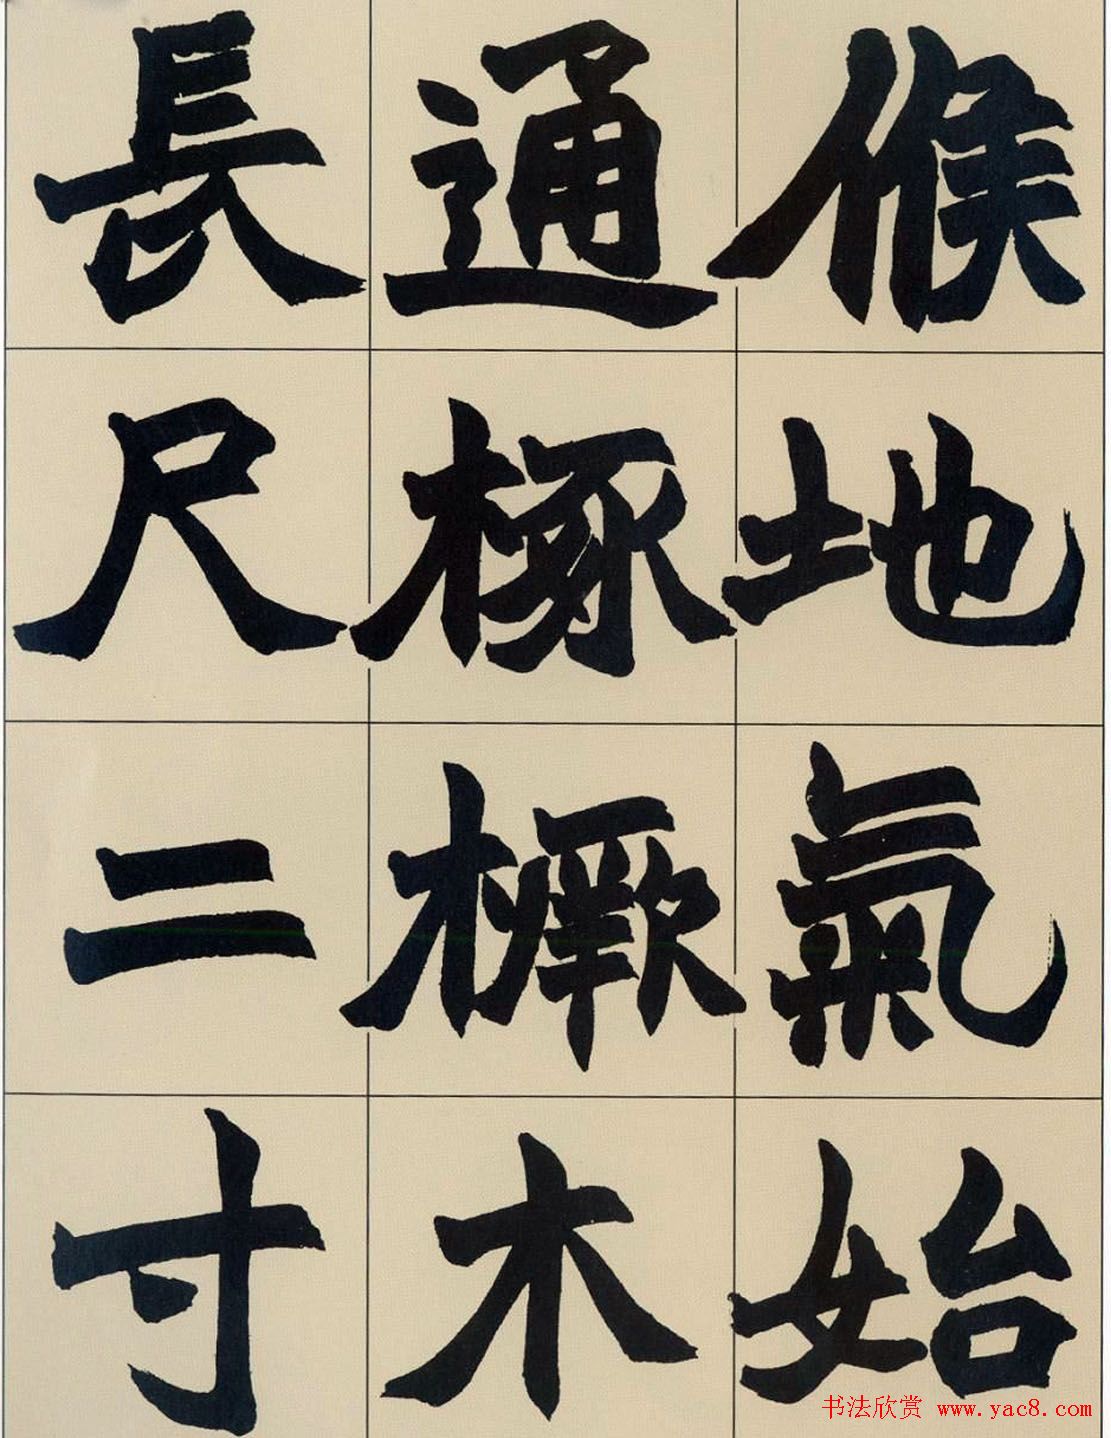 候地氣始
通椓橛木
長尺二寸
书法欣赏 www.yac8.com